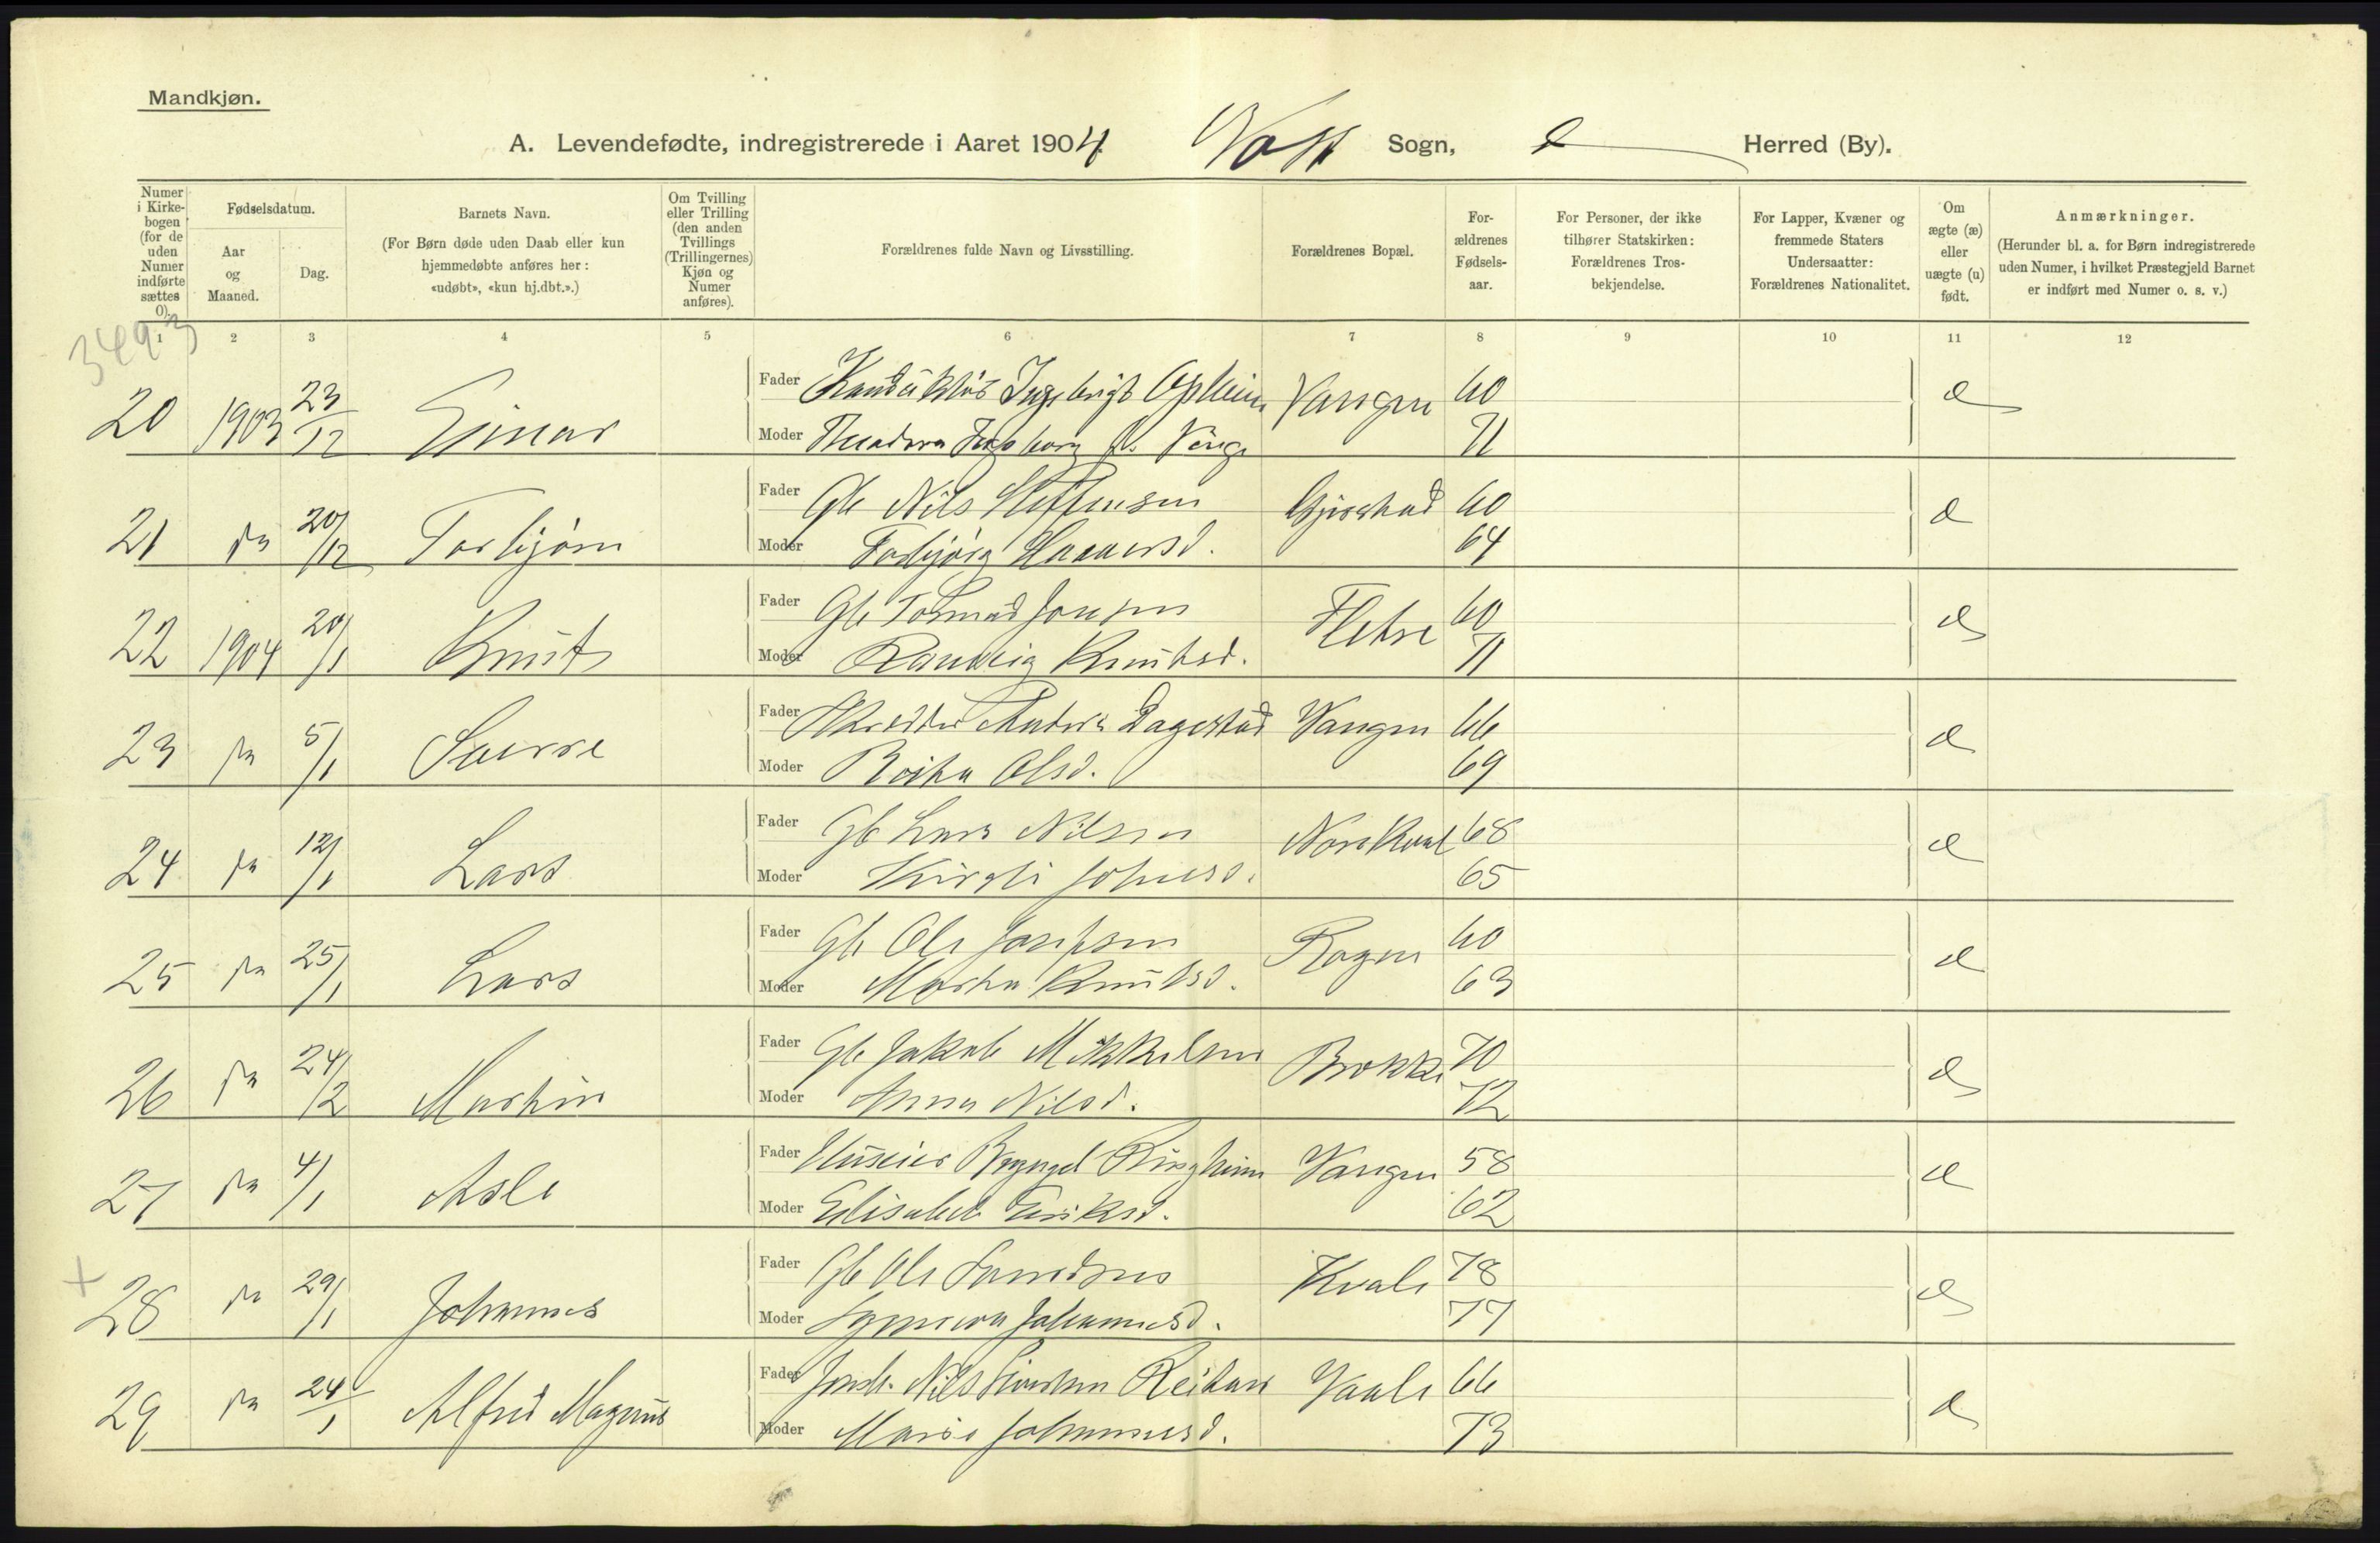 Mandkjøn.
A. Levendefødte, indregistrerede i Aaret 1904. Voss Sogn, Herred (By).
Numer i Kirkebogen (for de uden Numer indførte sættes 0).
Fødselsdatum.
Aar og Maaned.
Dag.
Barnets Navn.
(For Børn døde uden Daab eller kun hjemmedøbte anføres her: «udøbt», «kun hj.dbt.».)
Om Tvilling eller Trilling (den anden Tvillings (Trillingernes) Kjøn og Numer anføres).
Forældrenes fulde Navn og Livsstilling.
Forældrenes Bopæl.
Forældrenes Fødselsaar.
For Personer, der ikke tilhører Statskirken: Forældrenes Trosbekjendelse.
For Lapper, Kvæner og fremmede Staters Undersaatter: Forældrenes Nationalitet.
Om ægte (æ) eller uægte (u) født.
Anmærkninger.
(Herunder bl. a. for Børn indregistrerede uden Numer, i hvilket Præstegjeld Barnet er indført med Numer o. s. v.)
1 2 3 4 5 6 7 8 9 10 11 12
3493
20 1903 23/12 Einar Fader Konduktør Ingebrigt Opheim Vangen 60 æ
Moder Theodora Ingeborg f. Vinge 71
21 da 20/12 Torbjørn Fader Gb Nils Steffensen Gjerstad 60 æ
Moder Torbjørg 64
22 1904 20/1 Knut Fader Gb Tormod Jonsen Fletre 60 æ
Moder Randveig Knutsd. 71
23 da 5/1 Sverre Fader Skrædder Anders Dagestad Vangen 66 æ
Moder Brita Olsd. 69
24 da 12/1 Lars Fader Gb Lars Nilsen 68 æ
Moder Kirsti Johnsd. 65
25 da 25/1 Lars Fader Gb Ole Josefsen Rogne 60 æ
Moder Marta Knutsd. 63
26 da 24/2 Martin Fader Gb Jakob Mikkelsen Brekke 70 æ
Moder Anna Nilsd. 72
27 da 4/1 Asle Fader Huseier Brynjel Ringheim Vangen 58 æ
Moder Elisabet Eriksd. 62
28 da 29/1 Johannes Fader Gb Ole Kvale 78 æ
Moder Johannesd. 77
29 da 24/1 Alfred Magnus Fader Nils 66 æ
Moder Marie Johannesd. 73